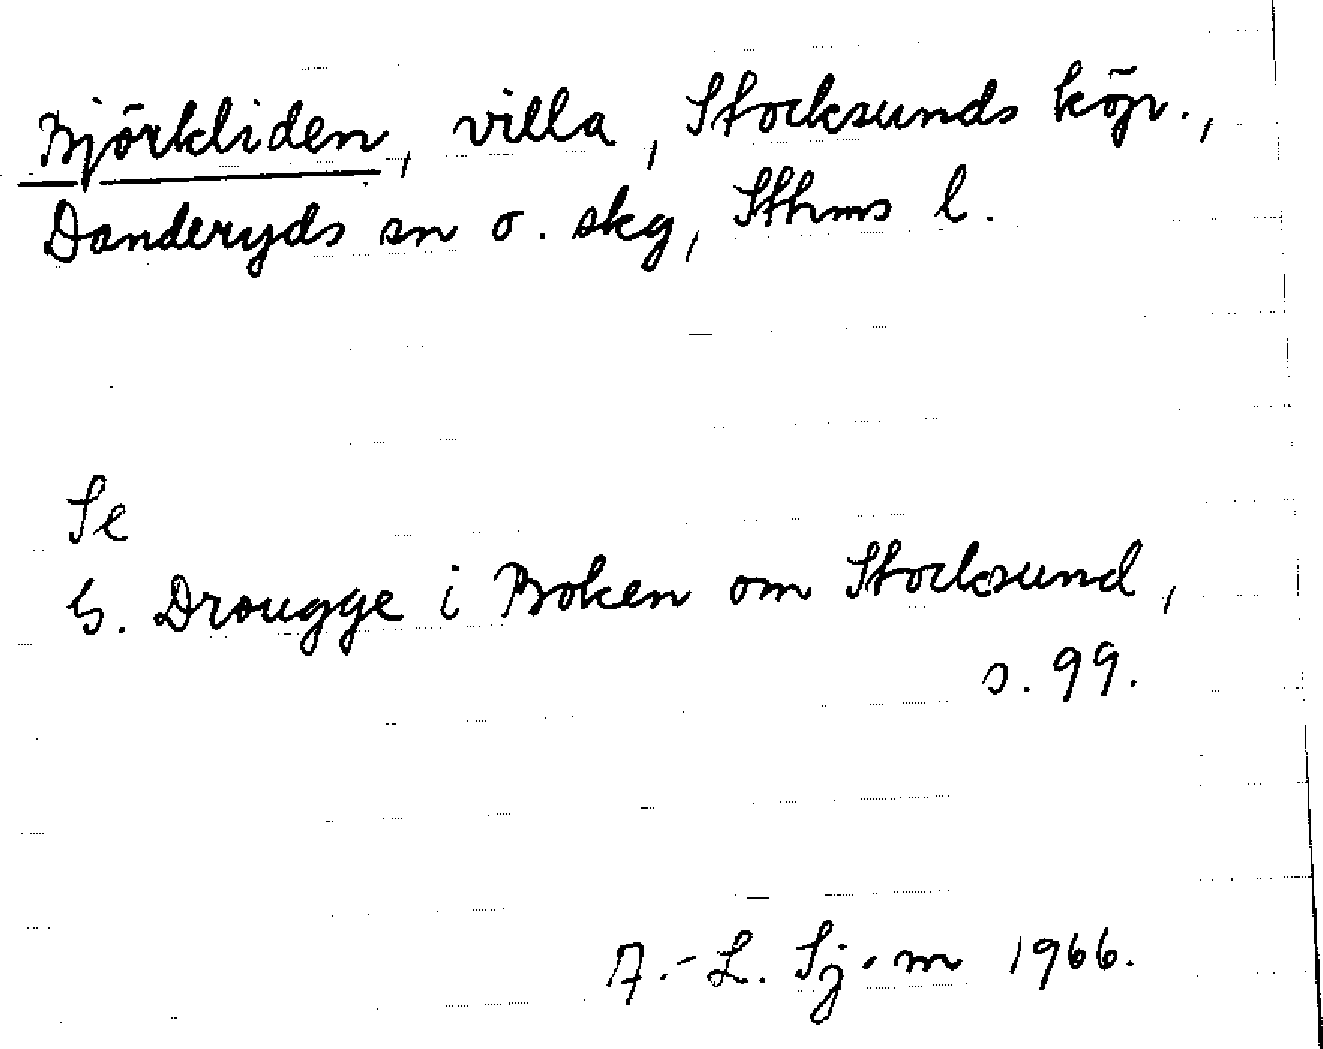 Björkliden, villa, Stocksunds köp.,
Danderyds sn o. skg, Sthms l.
Se
G. Drougge i Boken om Stocksund,
s. 99.
A.-L. Sj-m 1966.